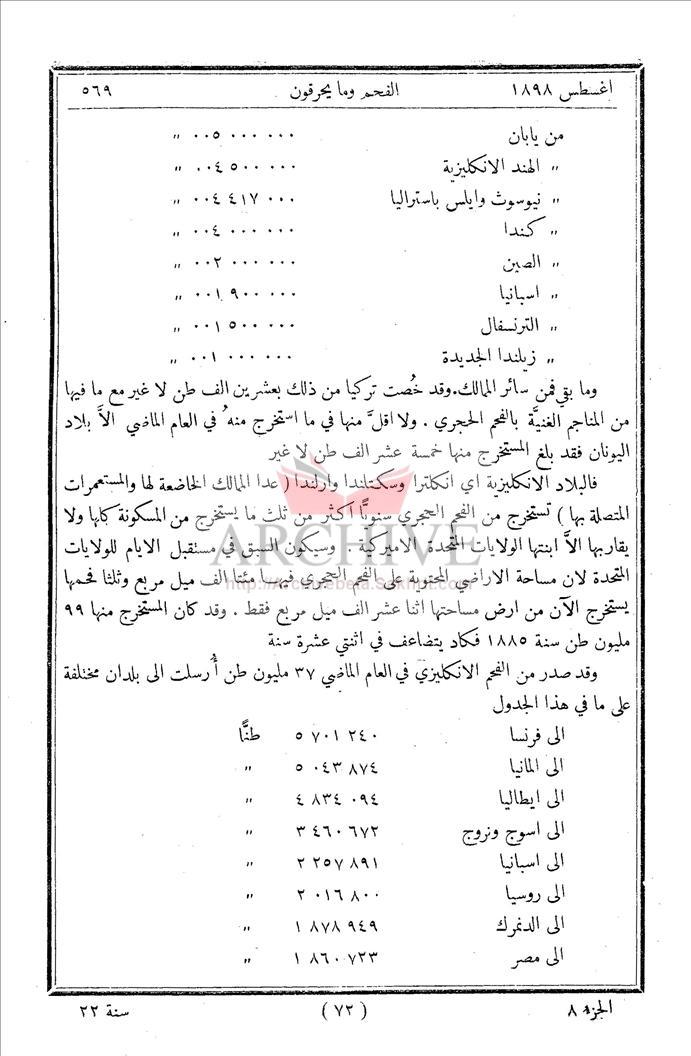 اغسطس ١٨٩٨ الفحم وما يحرقون ٥٦٩
من يابان ٠٠٥ ٠٠٠ ٠٠٠ "
" الهند الانكليزية ٠٠٤ ٥٠٠ ٠٠٠ "
" نيوسوث وايلس باستراليا ٠٠٤ ٤١٧ ٠٠٠ "
" كندا ٠٠٤ ٠٠٠ ٠٠٠ "
" الصين ٠٠٢ ٠٠٠ ٠٠٠ "
" اسبانيا ٠٠١ ٩٠٠ ٠٠٠ "
" الترنسفال ٠٠١ ٥٠٠ ٠٠٠ "
" زيلندا الجديدة ٠٠١ ٠٠٠ ٠٠٠ "
وما بقي فمن سائر الممالك. وقد خُصت تركيا من ذلك بعشرين الف طن لا غير مع ما فيها
من المناجم الغنيَّة بالفحم الحجري . ولا اقلَّ منها في ما استخرج منهُ في العام الماضي الاَّ بلاد
اليونان فقد بلغ المستخرج منها خمسة عشر الف طن لا غير
فالبلاد الانكليزية اي انكلترا وسكتلندا وارلندا ( عدا الممالك الخاضعة لها والمستعمرات
المتصلة بها ) تستخرج من الفحم الحجري سنويًّا اكثر من ثلث ما يستخرج من المسكونة كلها ولا
يقاربها الاَّ ابنتها الولايات المتحدة الاميركية وسيكون السبق في مستقبل الايام للولايات
المتحدة لان مساحة الاراضي المحتوية على الفحم الحجري فيها مئتا الف ميل مربع وثلثا فحمها
يستخرج الآن من ارض مساحتها اثنا عشر الف ميل مربع فقط . وقد كان المستخرج منها ٩٩
مليون طن سنة ١٨٨٥ فكاد يتضاعف في اثنتي عشرة سنة
وقد صدر من الفحم الانكليزي في العام الماضي ٣٧ مليون طن أُرسلت الى بلدان مختلفة
على ما في هذا الجدول
الى فرنسا ٥ ٧٠١ ٢٤٠ طنًّا
الى المانيا ٥ ٠٤٣ ٨٧٤ "
الى ايطاليا ٤ ٨٣٤ ٠٩٤ "
الى اسوج ونروج ٣ ٤٦٠ ٦٧٢ "
الى اسبانيا ٢ ٢٥٧ ٨٩١ "
الى روسيا ٢ ٠١٦ ٨٠٠ "
الى الدنمرك ١ ٨٧٨ ٩٤٩ "
الى مصر ١ ٨٦٠ ٧٢٣ "
الجزء ٨ ( ٧٢ ) سنة ٢٢
ARCHIVE